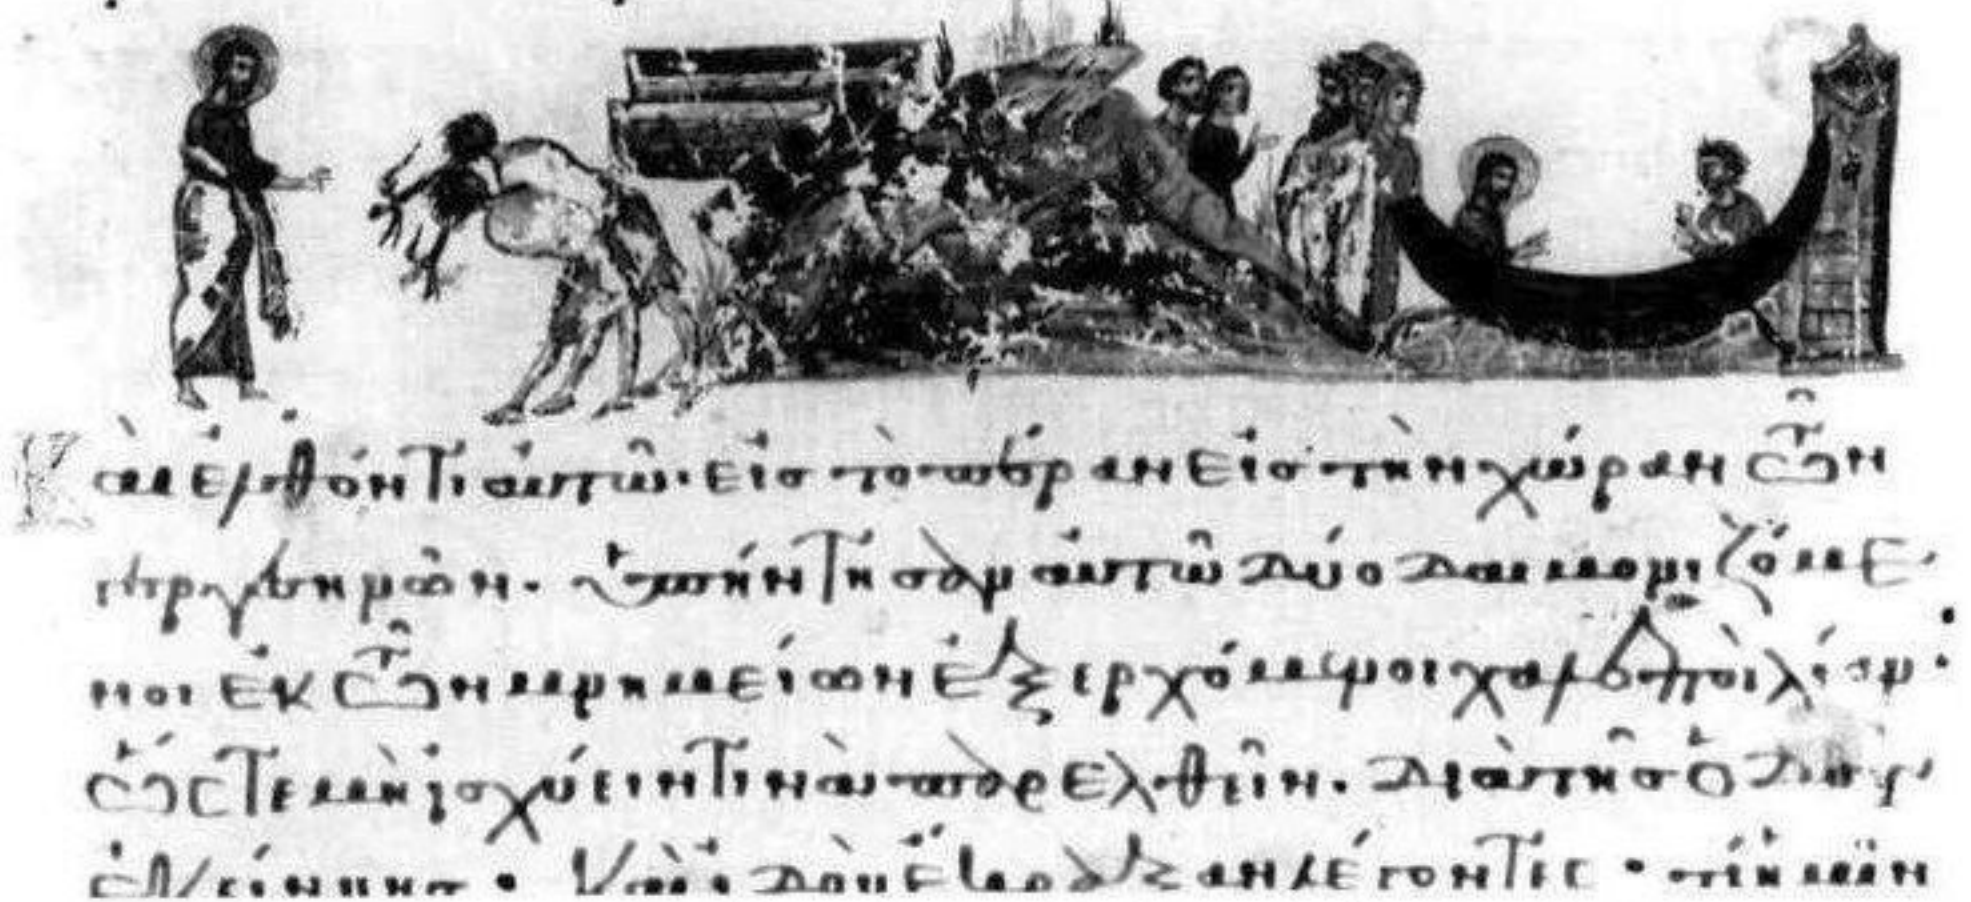 Καὶ ἐλθόντι αὐτῶ· εἰς τὸ πέραν εἰς τὴν χώραν τῶν
γεργεσηνῶν. ὑπήντησαν αὐτῶ δύο δαιμονιζόμε
νοι ἐκ τῶν μνημείων ἐξερχόμενοι χαλεποὶ λίαν·
ὥστε μὴ ἰσχύειν τινὰ παρελθεῖν. διὰ τῆς ὁδοῦ
ἐκείνης· Καὶ ἰδοὺ ἔκραξαν λέγοντες· τί ἡμῖν